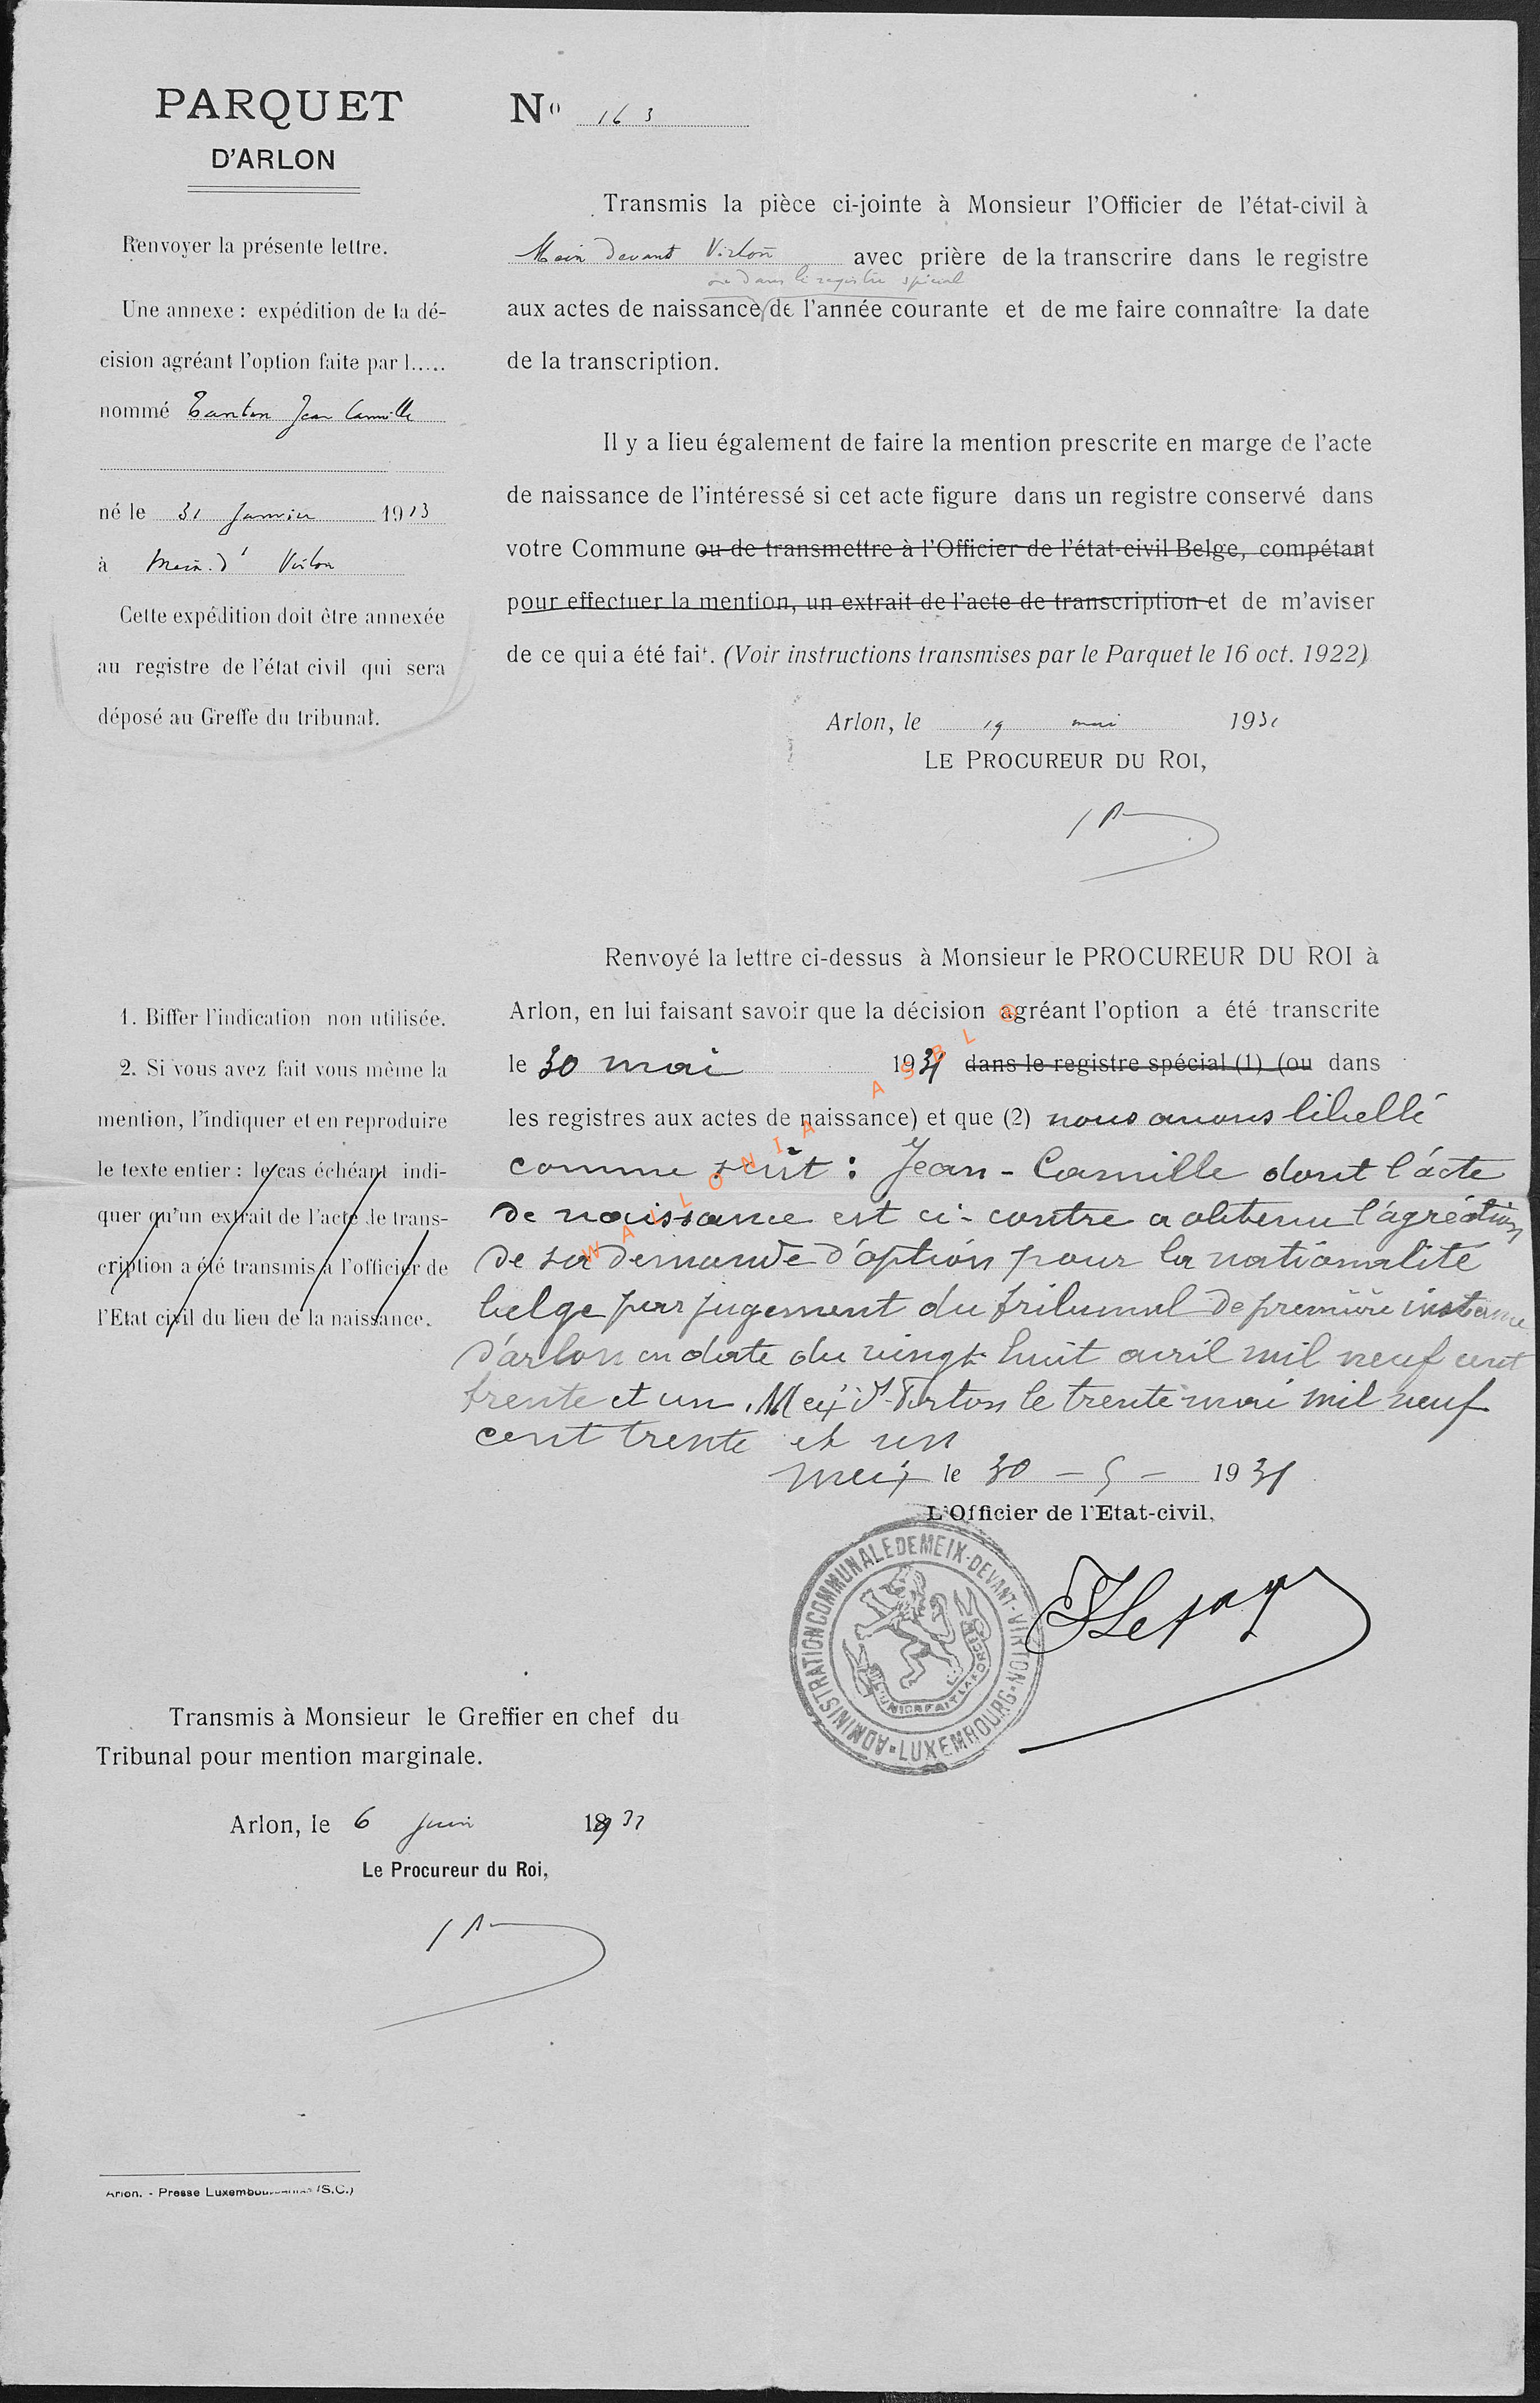 PARQUET
D'ARLON
Renvoyer la présente lettre.
Une annexe : expédition de la dé-
cision agréant l'option faite par l.....
nommé Tanton Jean Camille
né le 31 Janvier 1913
à Meix. d' Virton
Cette expédition doit être annexée
au registre de l'état civil qui sera
déposé au Greffe du tribunal.
No 163
Transmis la pièce ci-jointe à Monsieur l'Officier de l'état-civil à
Meix Devant Virton avec prière de la transcrire dans le registre
ou dans le registre spécial
aux actes de naissance de l'année courante et de me faire connaître la date
de la transcription.
Il y a lieu également de faire la mention prescrite en marge de l'acte
de naissance de l'intéressé si cet acte figure dans un registre conservé dans
votre Commune ou de transmettre à l'Officier de l'état-civil Belge, compétant
pour effectuer la mention, un extrait de l'acte de transcription et de m'aviser
de ce qui a été fait. (Voir instructions transmises par le Parquet le 16 oct. 1922)
Arlon, le 19 mai 1931
LE PROCUREUR DU ROI,
1. Biffer l'indication non utilisée.
2. Si vous avez fait vous même la
mention, l'indiquer et en reproduire
le texte entier : le cas échéant indi-
quer qu'un extrait de l'acte de trans-
cription a été transmis à l'officier de
l'Etat civil du lieu de la naissance.
Renvoyé la lettre ci-dessus à Monsieur le PROCUREUR DU ROI à
Arlon, en lui faisant savoir que la décision agréant l'option a été transcrite
le 30 mai 1931 dans le registre spécial (1) (ou dans
les registres aux actes de naissance) et que (2) nous avons libellé
comme suit : Jean - Camille dont l'acte
de naissance est ci-contre a obtenu l'agréation
de sa demande d'option pour la nationalité
belge par jugement du tribunal de première instance
d'arlon en date du vingt huit avril mil neuf cent
trente et un. Meix dt Virton le trente mai mil neuf
cent trente et un
Meix le 30 - 5 - 1931
L'Officier de l'Etat-civil,
ADMINISTRATION COMMUNALE DE MEIX-DEVANT-VIRTON
LUXEMBOURG
L'UNION FAIT LA FORCE
WALLONIA ASBL ©
Transmis à Monsieur le Greffier en chef du
Tribunal pour mention marginale.
Arlon, le 6 juin 1931
Le Procureur du Roi,
Arlon. - Presse Luxembourgeoise (S.C.)